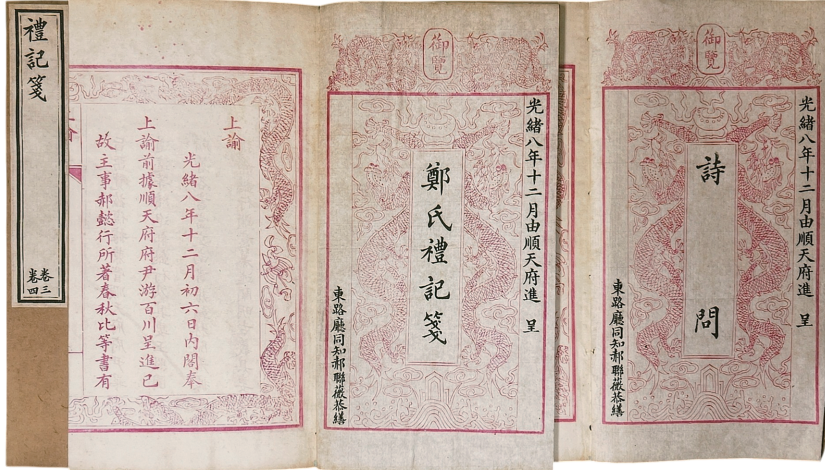 禮記箋
卷三
卷四
上諭
光緒八年十二月初六日內閣奉
上諭前據順天府府尹游百川呈進已
故主事郝懿行所著春秋比等書有
御覽
光緒八年十二月由順天府進 呈
鄭氏禮記箋
東路廳同知郝聯薇恭繕
御覽
光緒八年十二月由順天府進 呈
詩問
東路廳同知郝聯薇恭繕